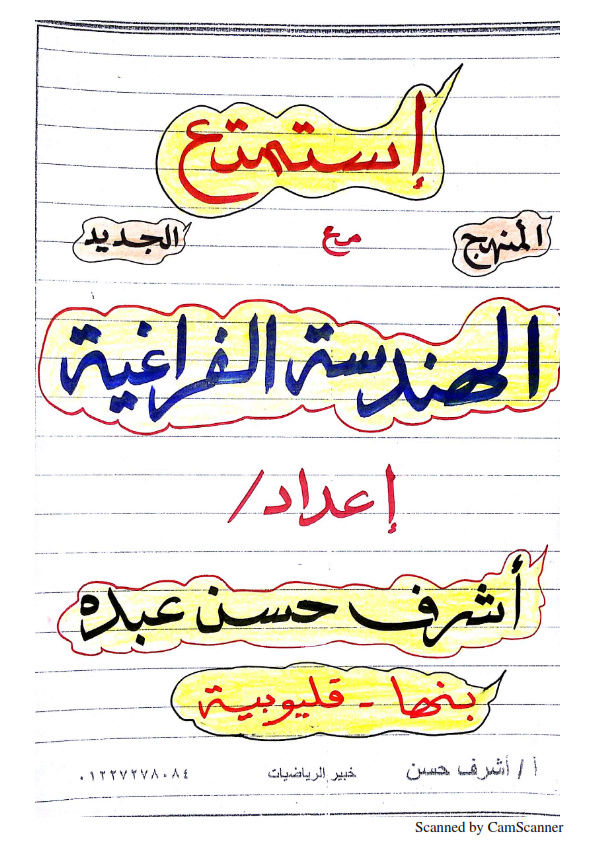 إستمتع
المنهج مع الجديد
الهندسة الفراغية
إعداد/
أشرف حسن عبده
بنها - قليوبية
أ / أشرف حسن خبير الرياضيات ٠١٢٢٧٢٧٨٠٨٤
Scanned by CamScanner